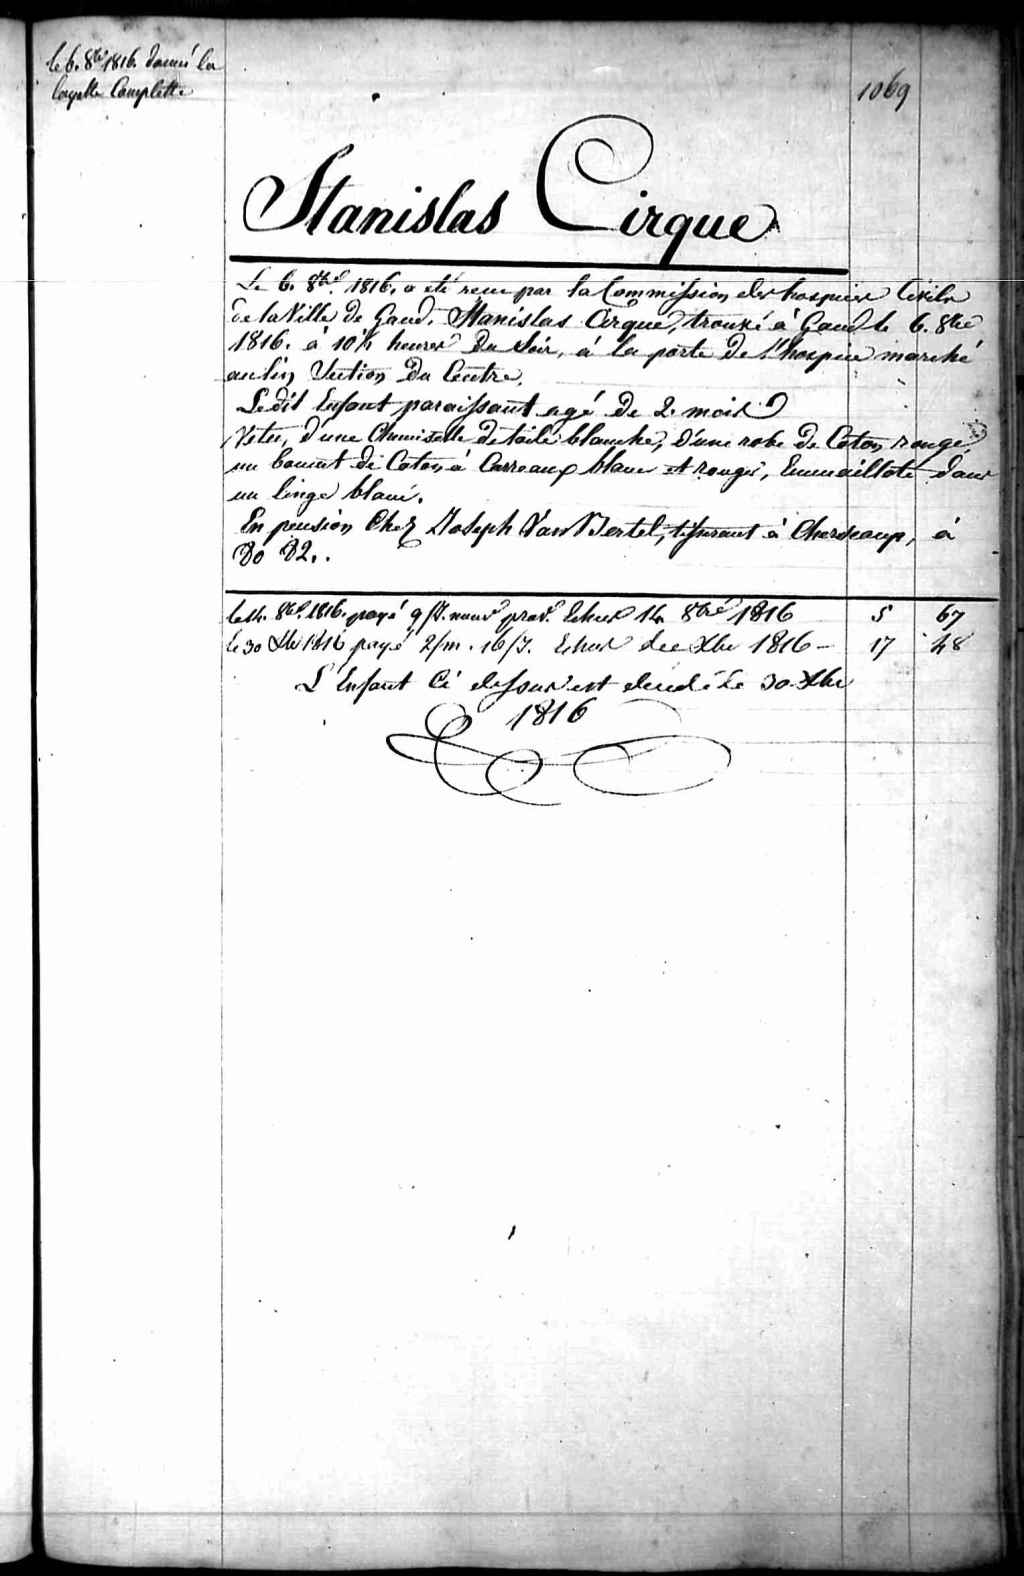 le 6. 8bre 1816. donné la
layette Complette
1069
Stanislas Cirque
Le 6. 8bre 1816. a été recu par la Commission des hospices Civils
de la Ville de Gand. Stanislas Cirque, trouvé à Gand le 6. 8bre
1816. à 10½ heures du Soir, à la porte de l'hospice marché
au lin Section du Centre.
Ledit Enfant paraissant agé de 2. mois
Vetu, d'une Chemisette de toile blanche, d'une robe de Coton rouge,
un bonnet de Coton à Carreaux blanc et rouges, Emmaillote dans
un linge blanc.
En pension Chez Joseph Van Bertel, tisserant à, à
Do D2.
le 14. 8bre 1816. payé 9/J. Echus 14 8bre 1816 5 67
le 30 Xbre 1816 payé 2/m. 16/J. Echus Xbre 1816 - 17 48
L'Enfant Ci dessus est decedé Le 30 Xbre
1816